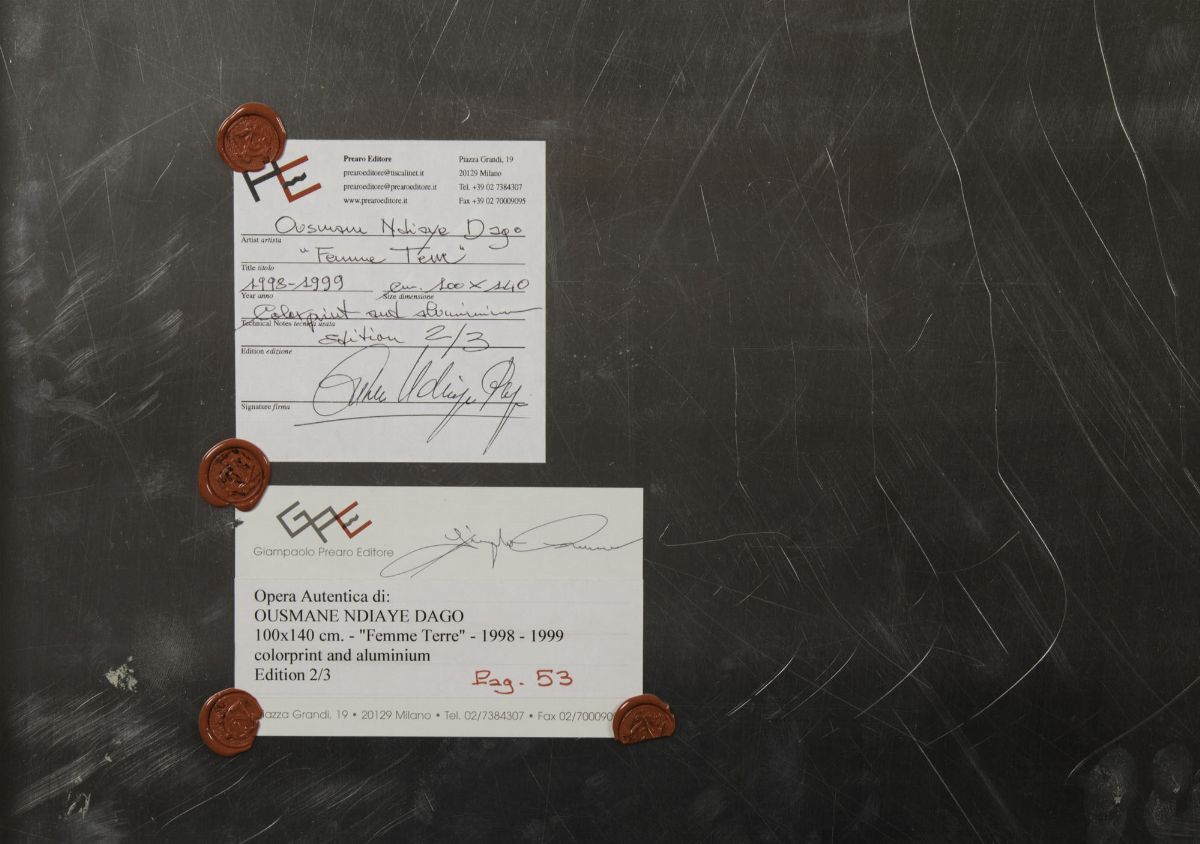 Prearo Editore
prearoeditore@tiscalinet.it
prearoeditore@prearoeditore.it
www.prearoeditore.it
Piazza Grandi, 19
20129 Milano
Tel. +39 02 7384307
Fax +39 02 70009095
Ousmane Ndiaye Dago
Artist artista
"Femme Terre"
Title titolo
1998-1999 cm. 100 x 140
Year anno Size dimensione
Colorprint and aluminium
Technical Notes tecnica usata
edition 2/3
Edition edizione
Signature firma
GPE
Giampaolo Prearo Editore
Opera Autentica di:
OUSMANE NDIAYE DAGO
100x140 cm. - "Femme Terre" - 1998 - 1999
colorprint and aluminium
Edition 2/3
Pag. 53
iazza Grandi, 19 • 20129 Milano • Tel. 02/7384307 • Fax 02/700090